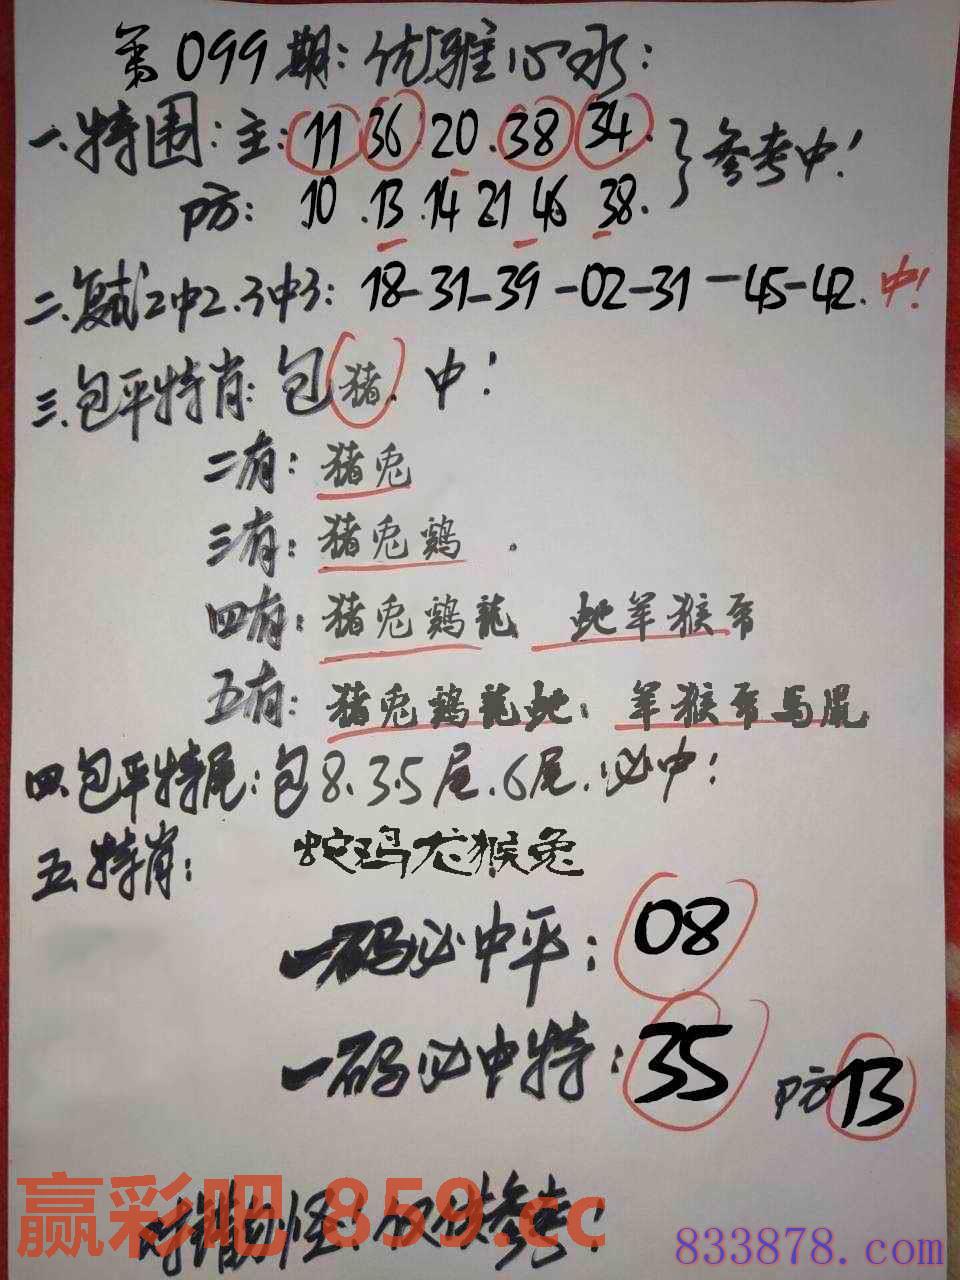 第099期：优雅心水：
一.特围：主：11 36 20.38 34.
防：10.13.14 21 46 38.
}参考中！
二.复试2中2.3中3：18-31-39-02-31-45-42.中！
三.包平特肖：包猪.中！
二有：猪兔
三有：猪兔鸡.
四有：猪兔鸡龍 蛇羊猴帝
五有：猪兔鸡龍蛇：羊猴帝马鼠
四.包平特尾：包8.3.5尾.6尾.必中！
五.特肖：蛇鸡龙猴兔
一码必中平：08
一码必中特：35 防13
对错别怪.仅供参考！
赢彩吧 859.cc
833878.com